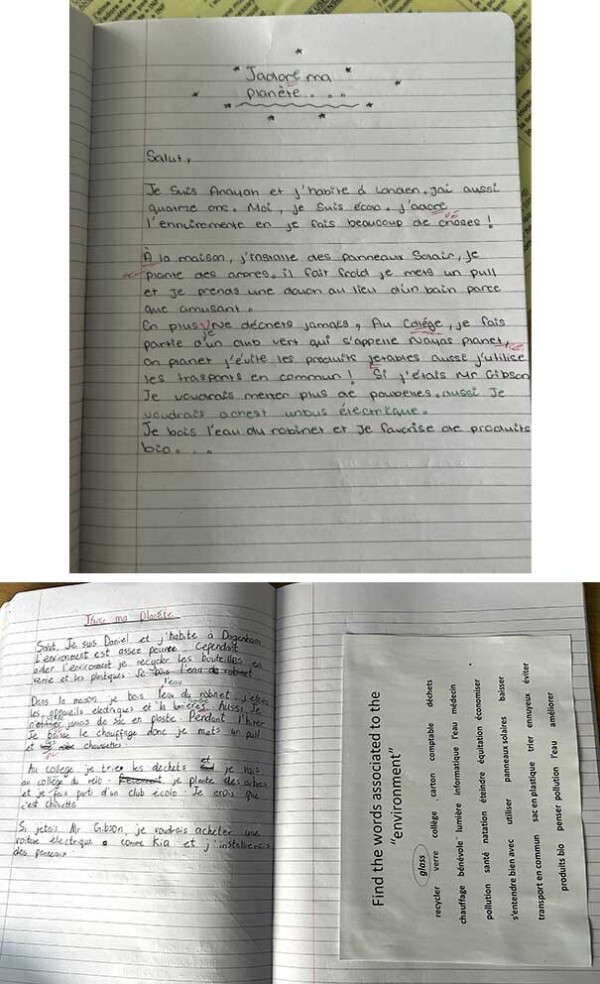 J'adore ma
planète...
Salut,
Je suis Anayah et j'habite à London. J'ai aussi
quatrze ans. Moi, je suis écolo. J'adore
l'enniromente en je fais beaucoup de choses!
À la maison, j'installe des panneaux Solair, je
plante des arbres. il fait froid je mets un pull
et je prends une douch au lieu d'un bain parce
que amusant.
En plus je Ne déchets jamais, Au Collège, je fais
partie d'un club vert qui s'appelle Nayas planet,
on planet j'évite les produits jetables aussi j'utilice
les trasports en commun! Si j'étais Mr Gibson
Je voudrais metter plus de poubelles. aussi Je
voudrais achest unbus électrique.
Je bois l'eau du robinet et Je favorise de produits
bio...
ma planète
Salut, Je suis Daniel et j'habite à Dagenham
L'enironment est assez Cependant
aider l'enviroment je recycler les bouteilles en
verre et les plastiques.
Dans la maison, je bois l'eau du robinet, j'eteins
les appareils electriques et la lumières. Aussi, Je
jamais de sac en plastic. Pendant l'hiver
Je baisse le chauffage donc je mets un pull
et chaussettes.
Au college je trier les dechets et je vais
au collège du velo. je plante des arbres
et je fais parti d'un club écolo. Je crois que
c'est chouette
Si jetais Mr Gibson, je voudrais acheter une
voiture électrique comme Kia et j'installerais
des panneaux.
Find the words associated to the
"environment"
glass
recycler verre collège carton comptable déchets
chauffage bénévole lumière informatique l'eau médecin
pollution santé natation éteindre équitation économiser
s'entendre bien avec utiliser panneaux solaires baisser
transport en commun sac en plastique trier ennuyeux éviter
produits bio penser pollution l'eau améliorer